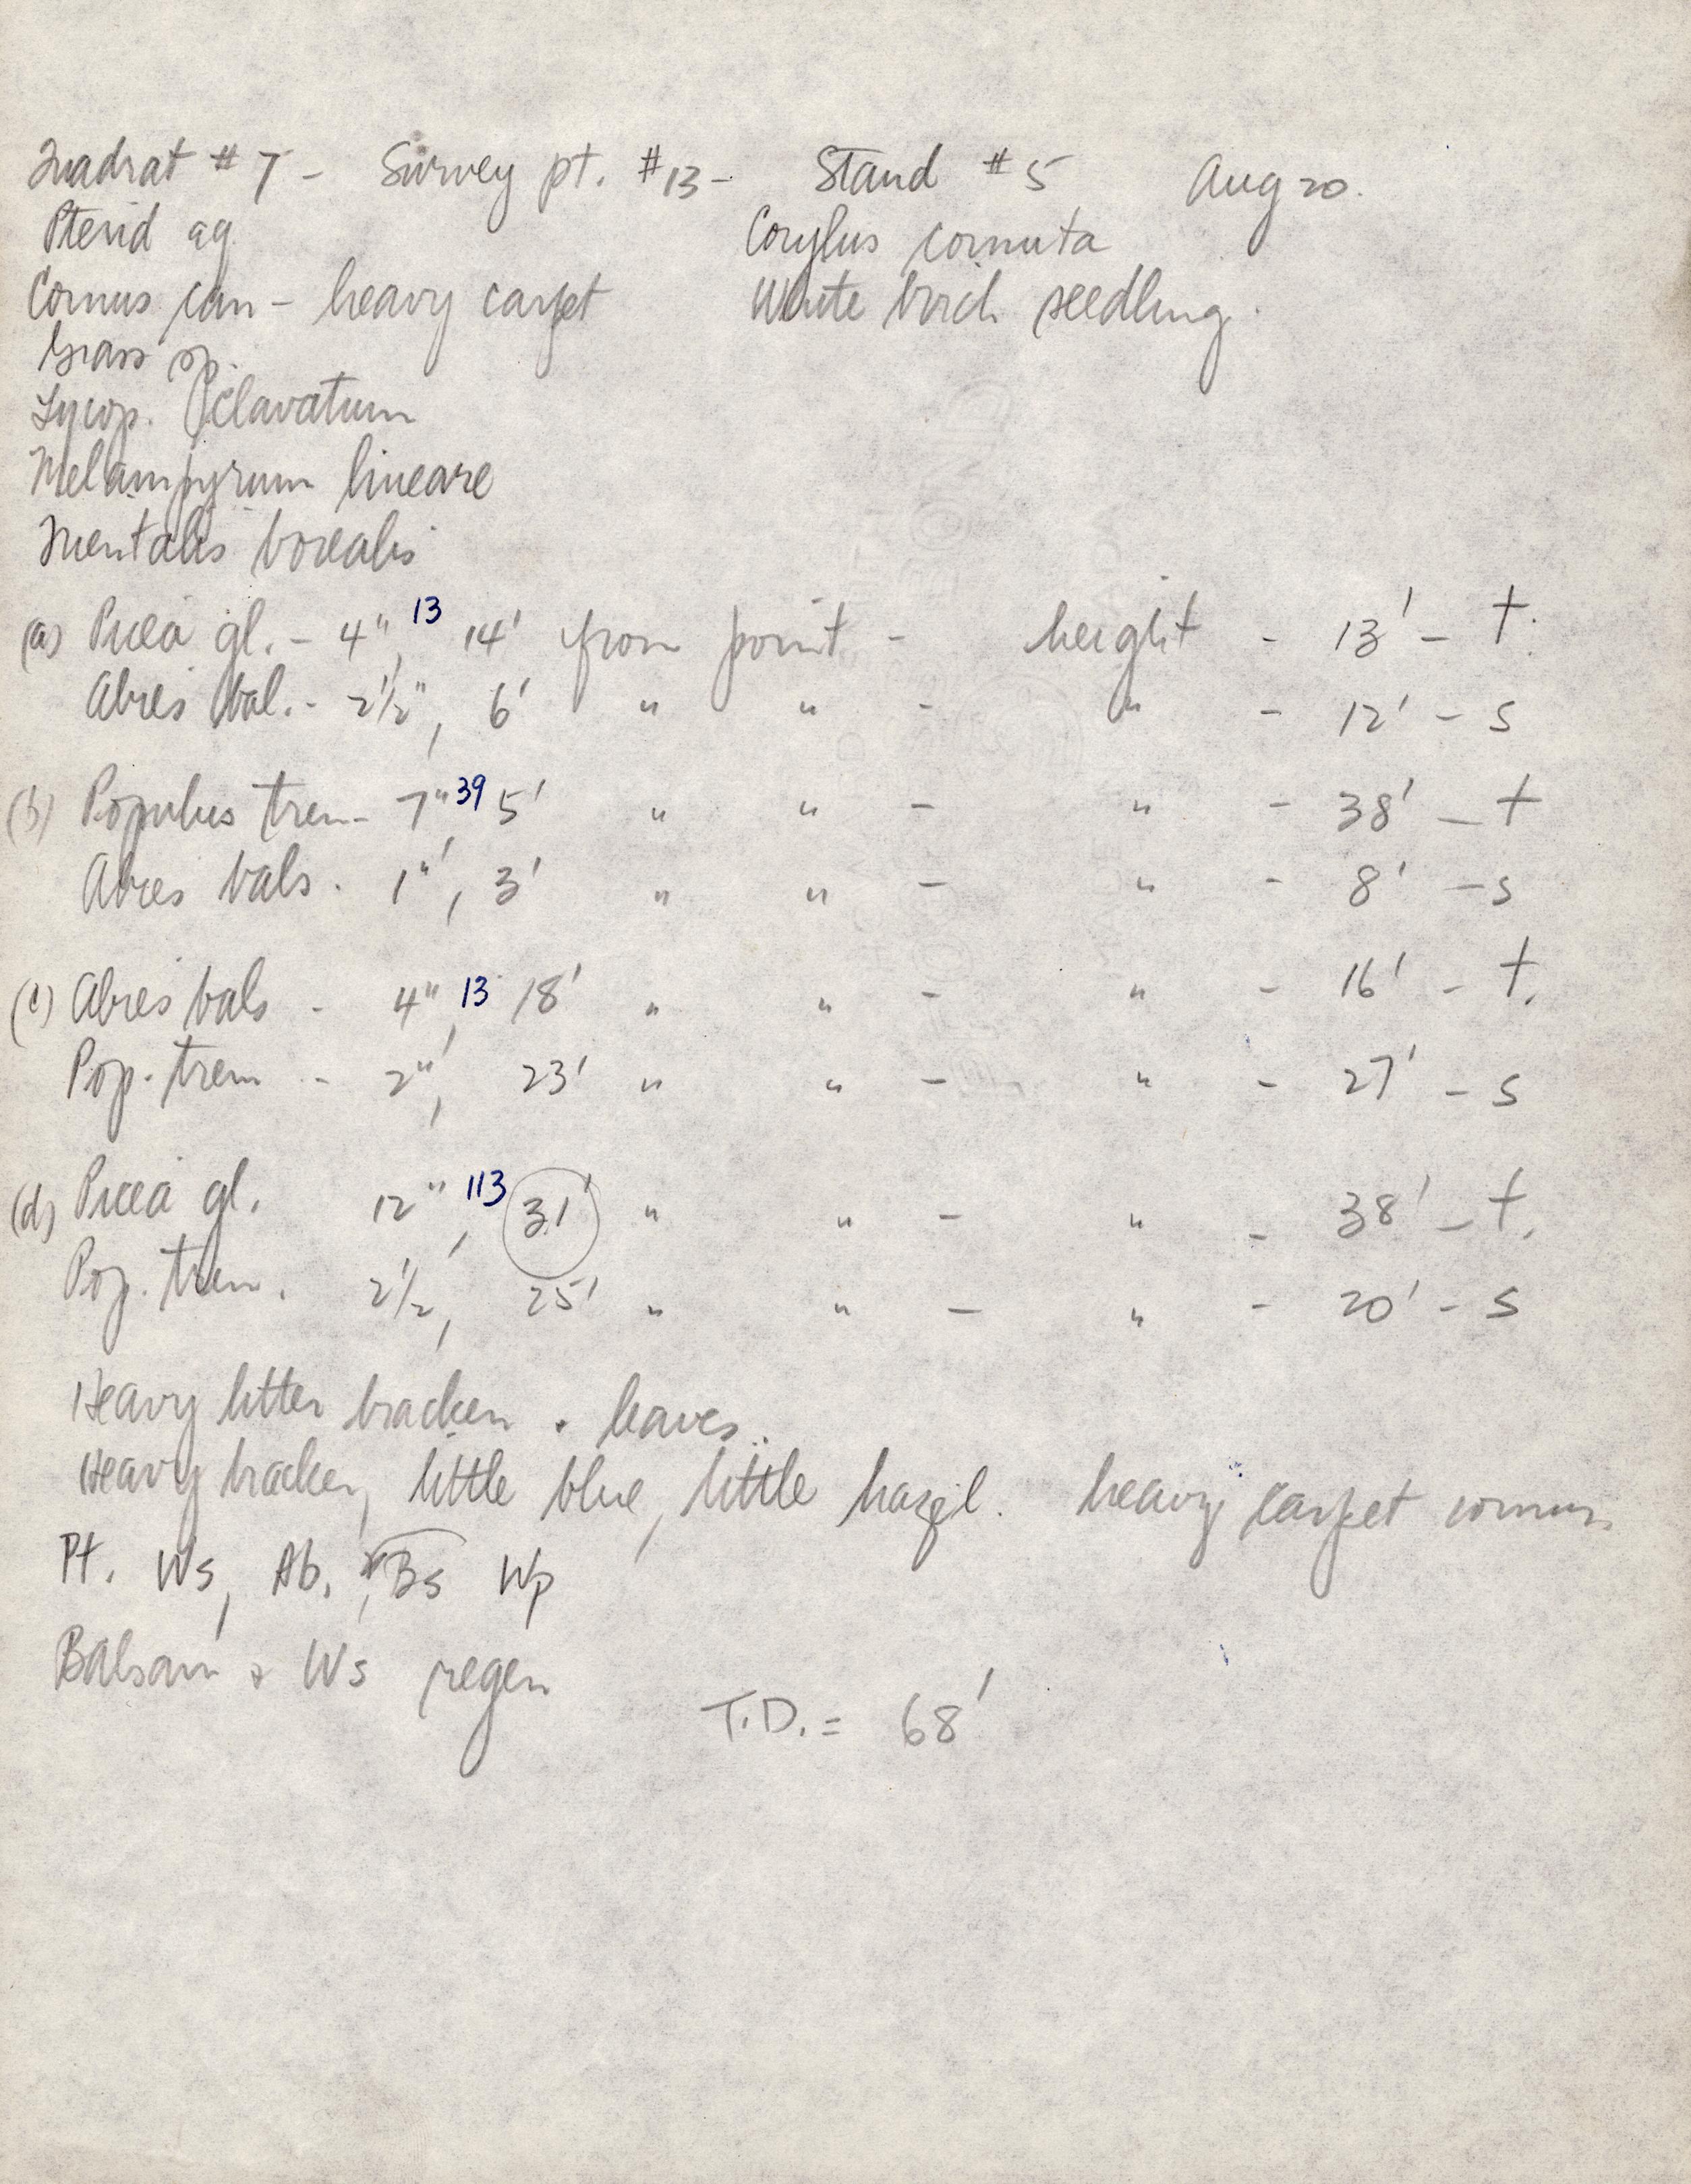 Quadrat # 7 - Survey pt. #13 - Stand #5 Aug 20.
Pterid aq Corylus cornuta
Cornus can - heavy carpet White birch seedling.
Grass sp.
Lycop. clavatum
Melampyrum lineare
Trientalis borealis
(a) Picea gl. - 4", 13 14' from point - height - 13' - t.
Abies bal. - 2 1/2", 6' " " - " - 12' - s
(b) Populus trem - 7", 39 5' " " - " - 38' - t
Abies bals. 1", 3' " " - " - 8' - s
(c) Abies bals - 4", 13 18' " " - " - 16' - t.
Pop. trem - 2", 23' " " - " - 27' - s
(d) Picea gl. 12", 113 31' " " - " - 38' - t.
Pop. trem. 2 1/2, 25' " " - " - 20' - s
Heavy litter bracken + leaves.
Heavy bracken, little blue, little hazel. heavy carpet cornus
Pt. Ws, Ab., Bs Wp
Balsam + Ws regen
T.D. = 68'